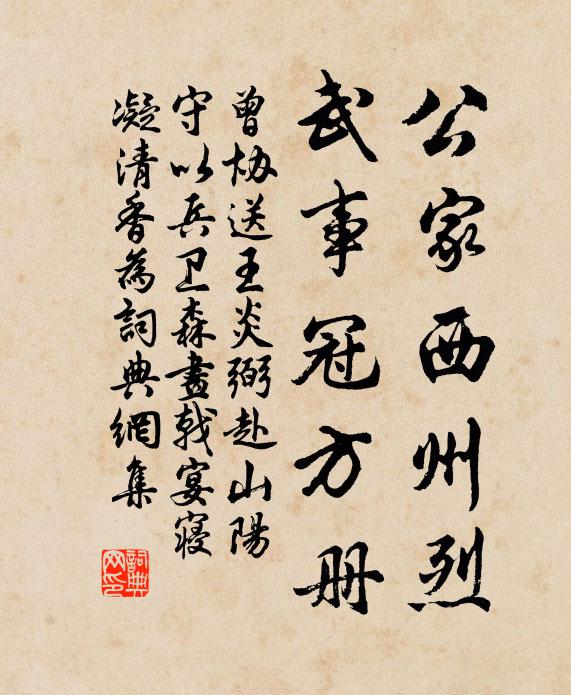 公家西州烈
武事冠方册
曾协送王炎弼赴山陽
守以兵卫森畫戟宴寝
凝清香為詞典網集
詞典网印